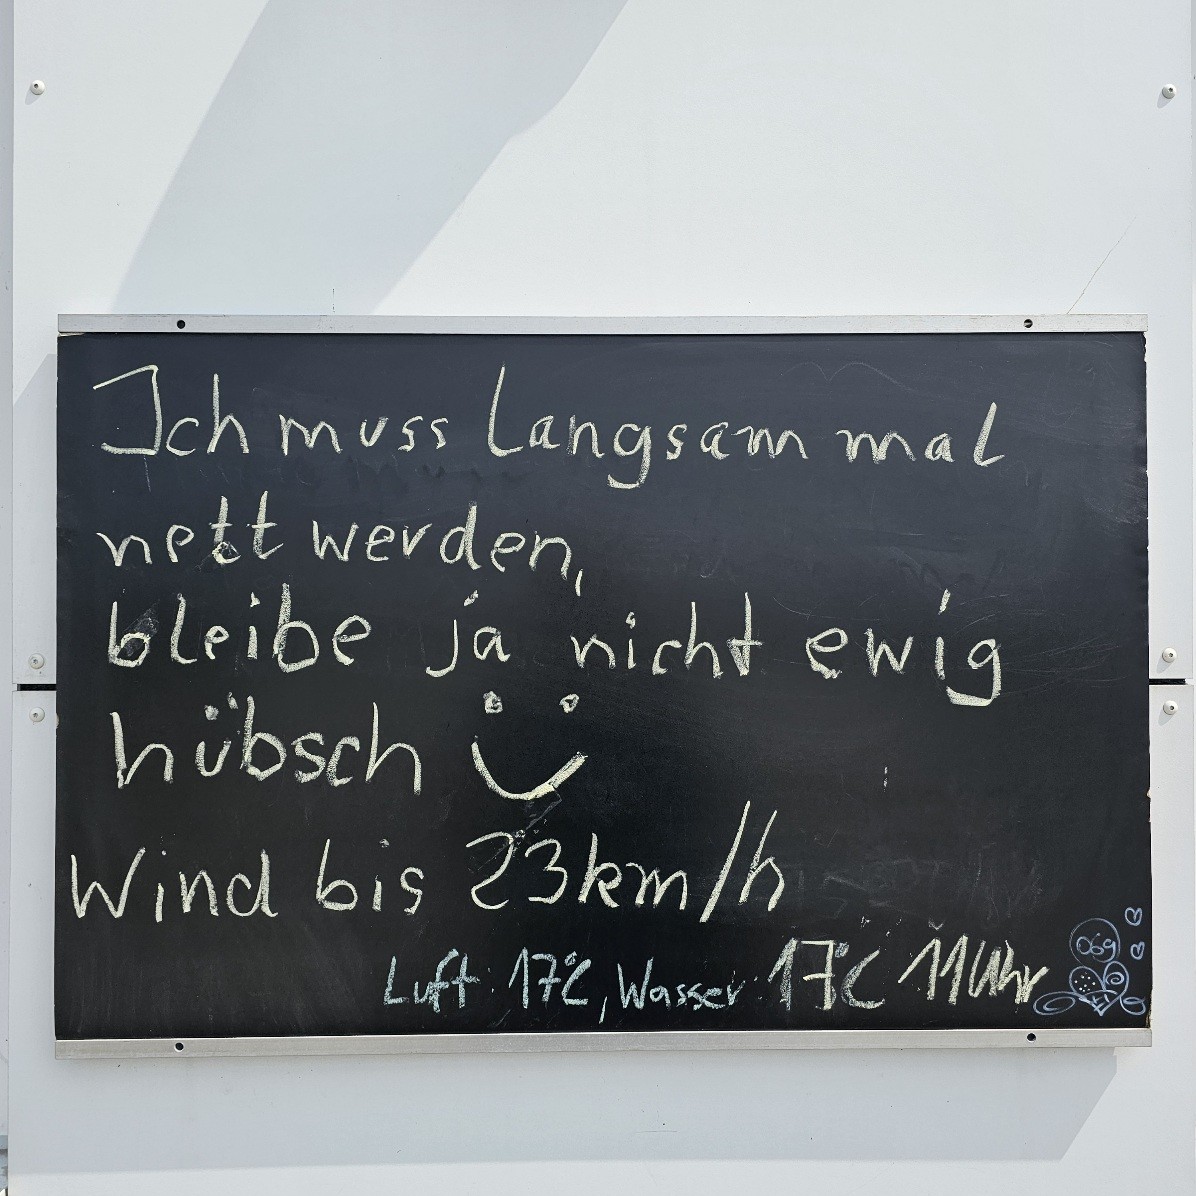 Ich muss langsam mal
nett werden,
bleibe ja nicht ewig
hübsch
Wind bis 23km/h
Luft: 17°C, Wasser: 17°C 11Uhr